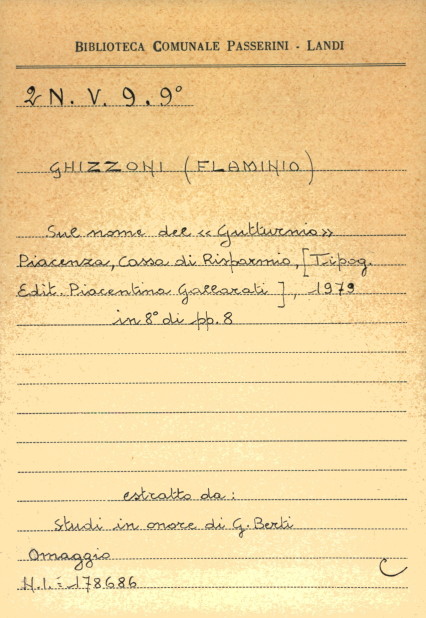 BIBLIOTECA COMUNALE PASSERINI - LANDI
2 N. V. 9. 9°
GHIZZONI (FLAMINIO)
Sul nome del «Gutturnio»
Piacenza, Cassa di Risparmio, [Tipog.
Edit. Piacentina Gallarati], 1979
in 8° di pp. 8
estratto da:
Studi in onore di G. Berti
Omaggio
C
N.I. = 178686